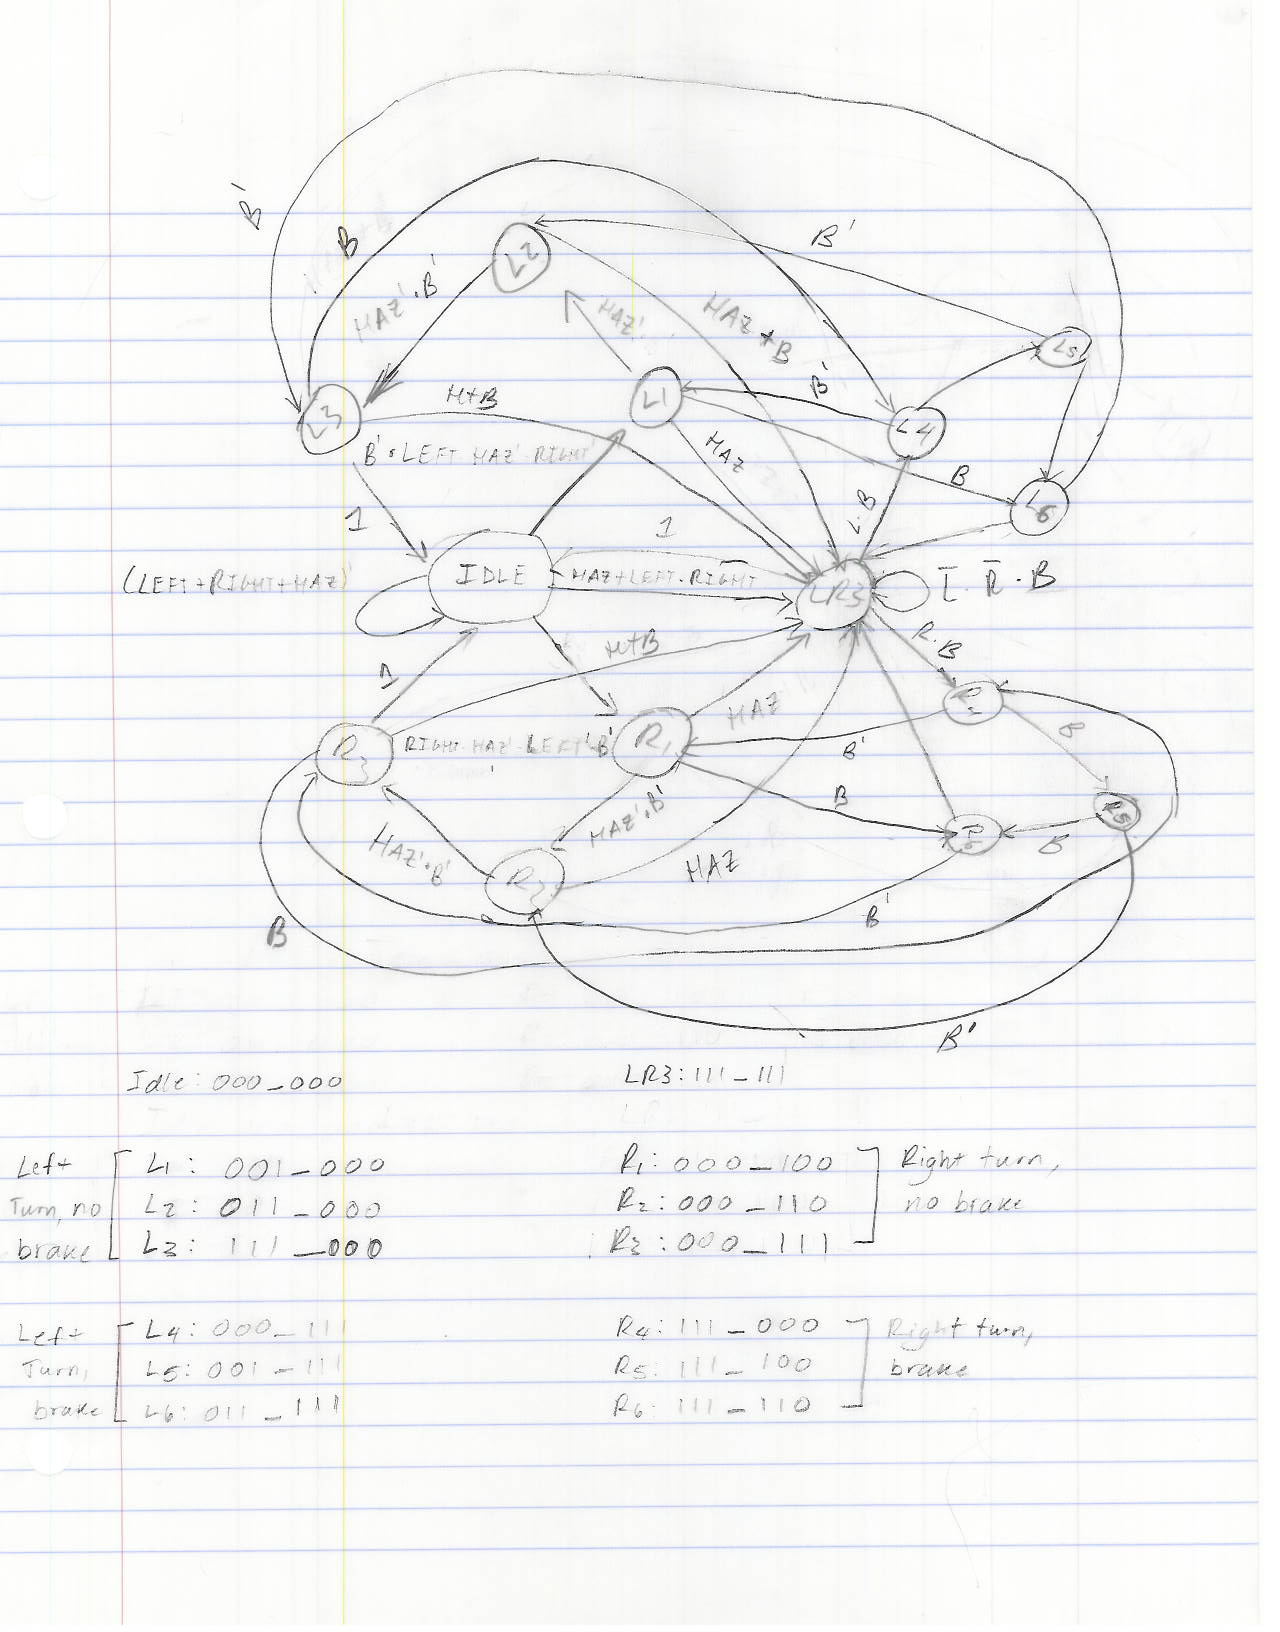 B'
B
L2
B'
HAZ'·B'
HAZ'
HAZ + B
L5
L3
H+B
L1
B'
L4
B'·LEFT·HAZ'·RIGHT'
HAZ
B
L6
1
1
L·B
(LEFT+RIGHT+HAZ)'
IDLE
HAZ+LEFT·RIGHT
LR3
L̅·R̅·B
R·B
H+B
1
R3
RIGHT·HAZ'·LEFT'·B'
R1
HAZ
B'
B
B
R5
HAZ'·B'
B
HAZ'·B'
HAZ
B'
B
B'
Idle: 000_000
LR3: 111_111
Left
Turn, no
brake
L1: 001_000
L2: 011_000
L3: 111_000
R1: 000_100
R2: 000_110
R3: 000_111
Right turn,
no brake
Left
Turn,
brake
L4: 000_111
L5: 001_111
L6: 011_111
R4: 111_000
R5: 111_100
R6: 111_110
Right turn,
brake